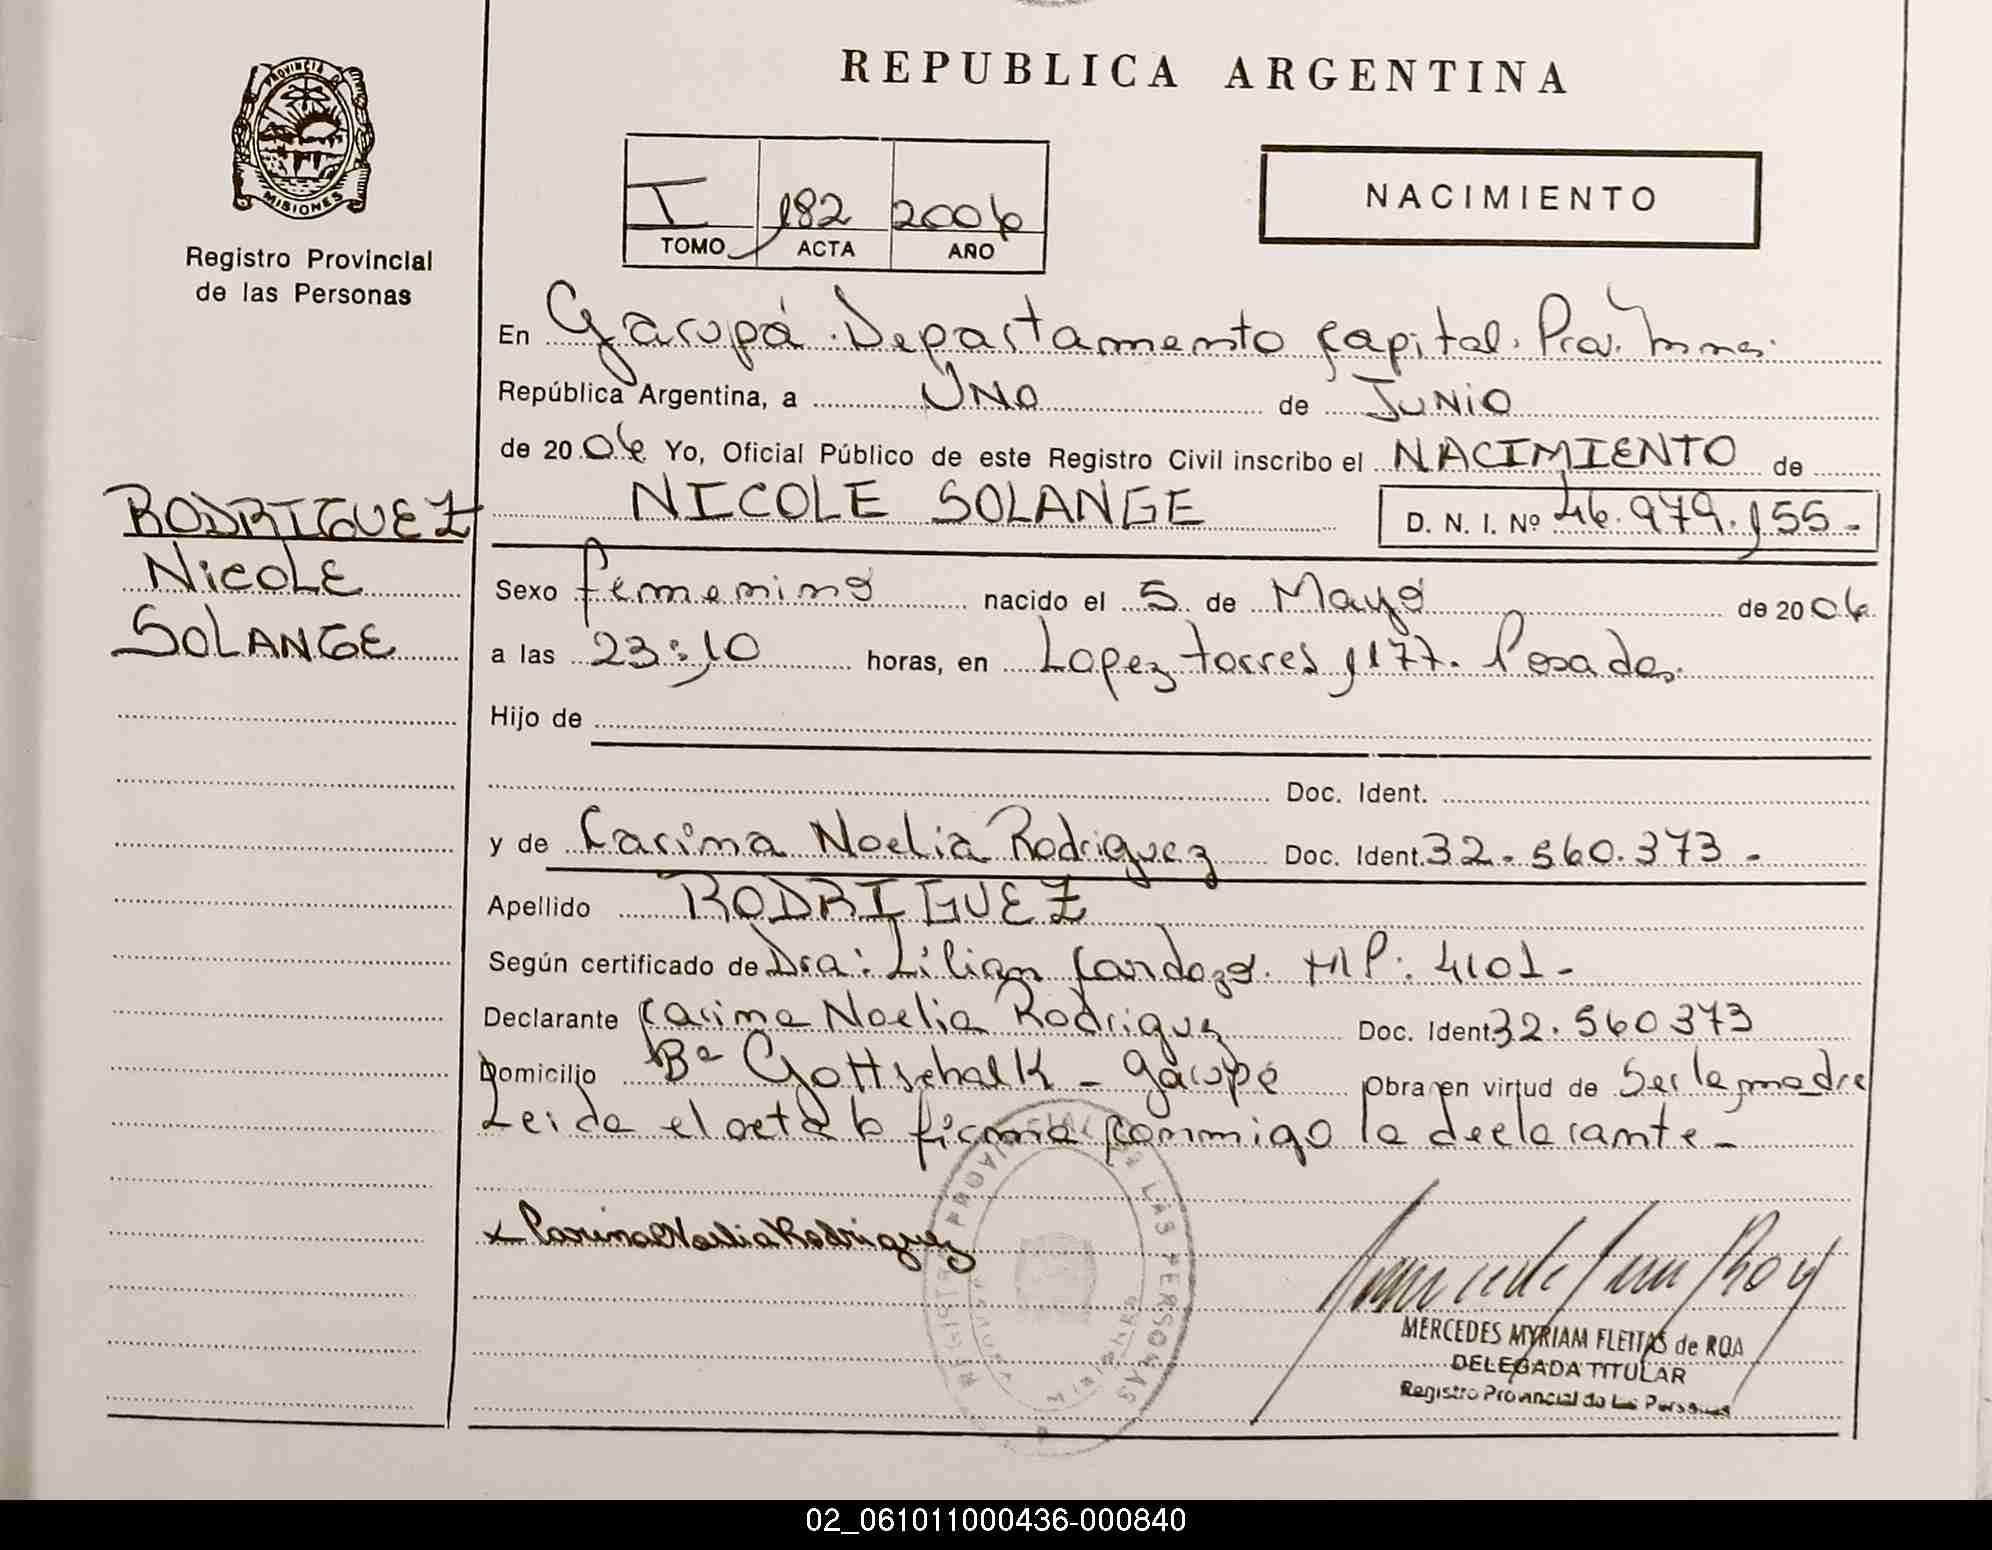 REPUBLICA ARGENTINA
PROVINCIA D
MISIONES
Registro Provincial
de las Personas
I 182 2006
TOMO ACTA AÑO
NACIMIENTO
En Garupá. Departamento Capital. Prov. Mnes.
República Argentina, a Uno de Junio
de 2006 Yo, Oficial Público de este Registro Civil inscribo el NACIMIENTO de
NICOLE SOLANGE D. N. I. Nº 46.979.155.-
RODRIGUEZ
Nicole
SOLANGE
Sexo femenino nacido el 5 de Mayo de 2006
a las 23:10 horas, en Lopez torres 1177. Posadas.
Hijo de
Doc. Ident.
y de Carina Noelia Rodriguez Doc. Ident. 32.560.373-
Apellido RODRIGUEZ
Según certificado de Dra: Lilian Cardozo. MP: 4101-
Declarante Carina Noelia Rodriguz Doc. Ident. 32.560373
Domicilio Bº Gottschalk - Garupá Obra en virtud de Ser la madre
Leida el acta la firma conmigo la declarante-
x Carina Noelia Rodriguez
MERCEDES MYRIAM FLEITAS de ROA
DELEGADA TITULAR
Registro Provincial de las Personas
02_061011000436-000840